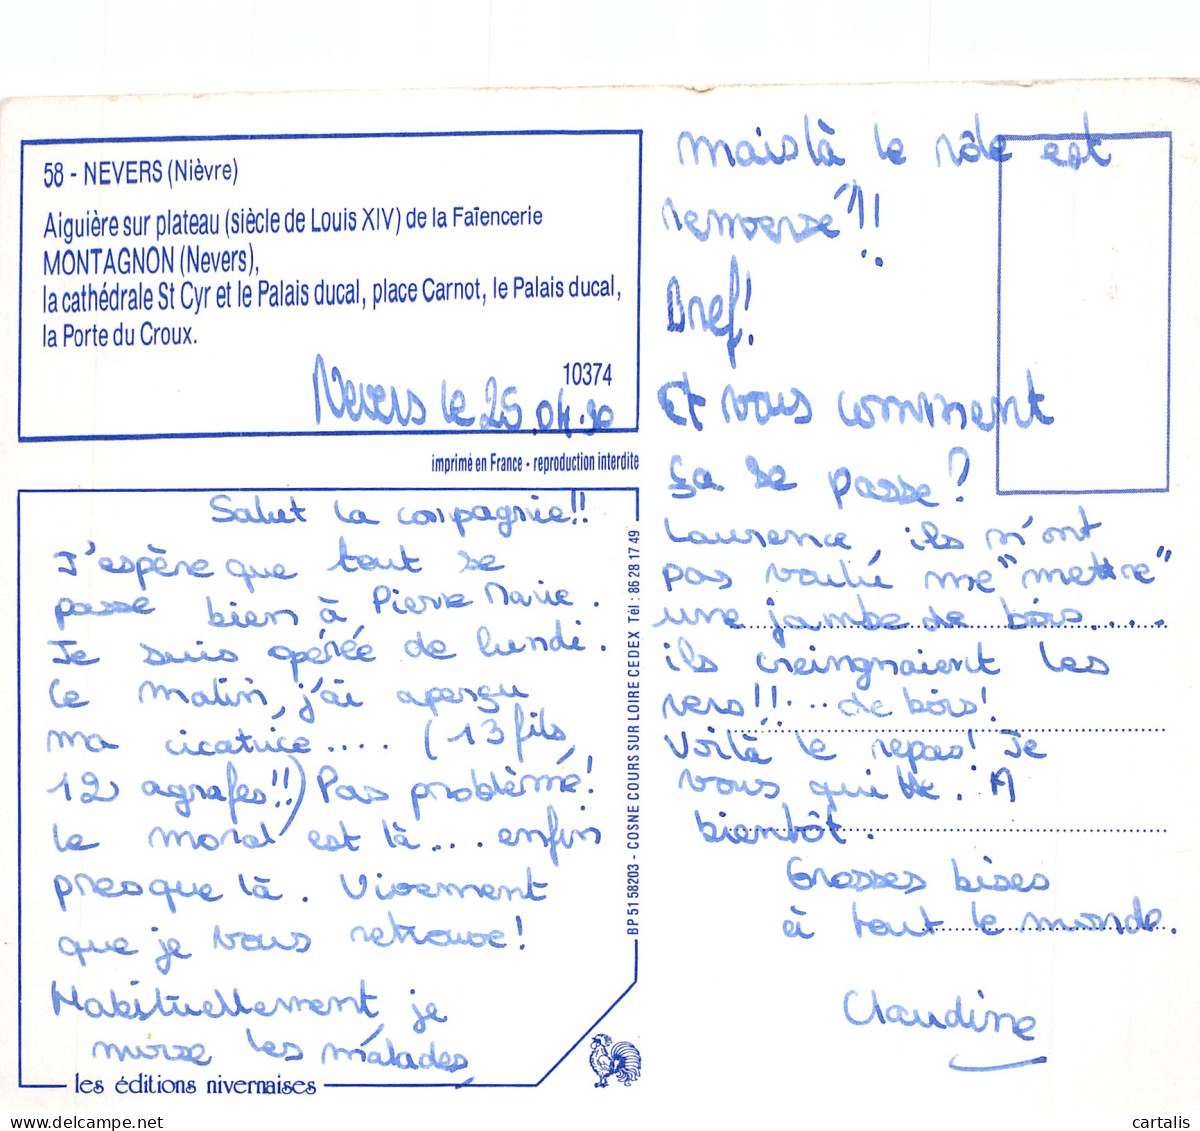 58 - NEVERS (Nièvre)
Aiguière sur plateau (siècle de Louis XIV) de la Faïencerie
MONTAGNON (Nevers),
la cathédrale St Cyr et le Palais ducal, place Carnot, le Palais ducal,
la Porte du Croux.
10374
Nevers le 25.04.90
imprimé en France - reproduction interdite
Salut la compagnie!!
J'espère que tout se
passe bien à Pierre Marie.
Je suis opérée de lundi.
Ce matin, j'ai aperçu
ma cicatrice.... (13 fils,
12 agrafes!!) Pas problème!
Le moral est là.... enfin
presque là. Vivement
que je vous retrouve!
Habituellement, je
nurse les malades,
BP 51 58203 - COSNE COURS SUR LOIRE CEDEX Tél : 86 28 17 49
les éditions nivernaises
mais là le rôle est
renversé!!!
Bref!
Et vous comment
ça se passe?
Laurence, ils n'ont
pas voulu me "mettre"
une jambe de bois.....
ils creingnaient les
vers!!... de bois!
Voilà le repas! Je
vous quitte. A
bientôt.
Grosses bises
à tout le monde.
Claudine
cartalis
delcampe.net